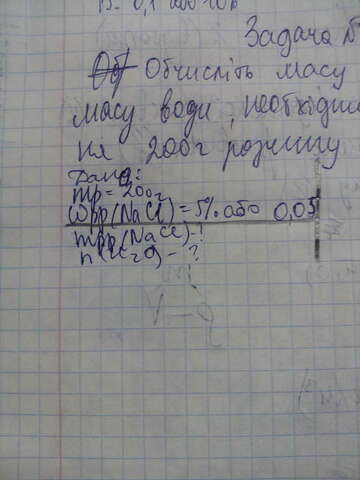 Задача
Обчисліть масу
масу води, необхідни
на 200г розчину
Дано:
mр = 200г
ωрр(NaCl) = 5% або 0,05
mрр(NaCl) - ?
n(H2O) - ?